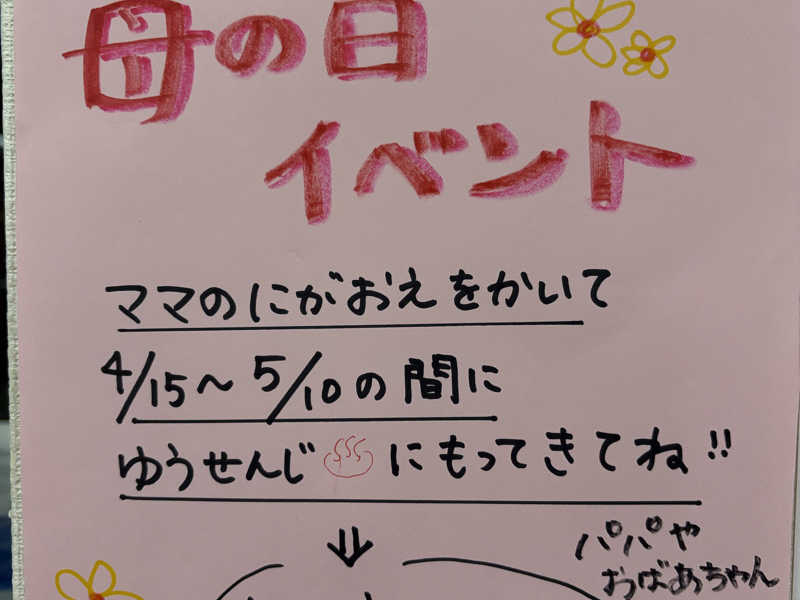 母の日
イベント
ママのにがおえをかいて
4/15〜5/10の間に
ゆうせんじ♨にもってきてね!!
パパや
おばあちゃん